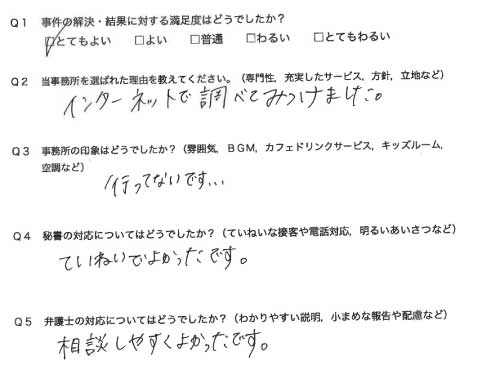 Q1 事件の解決・結果に対する満足度はどうでしたか？
☑とてもよい □よい □普通 □わるい □とてもわるい
Q2 当事務所を選ばれた理由を教えてください。（専門性，充実したサービス，方針，立地など）
インターネットで調べてみつけました。
Q3 事務所の印象はどうでしたか？（雰囲気，BGM，カフェドリンクサービス，キッズルーム，
空調など）
行ってないです...
Q4 秘書の対応についてはどうでしたか？（ていねいな接客や電話対応，明るいあいさつなど）
ていねいでよかったです。
Q5 弁護士の対応についてはどうでしたか？（わかりやすい説明，小まめな報告や配慮など）
相談しやすくよかったです。